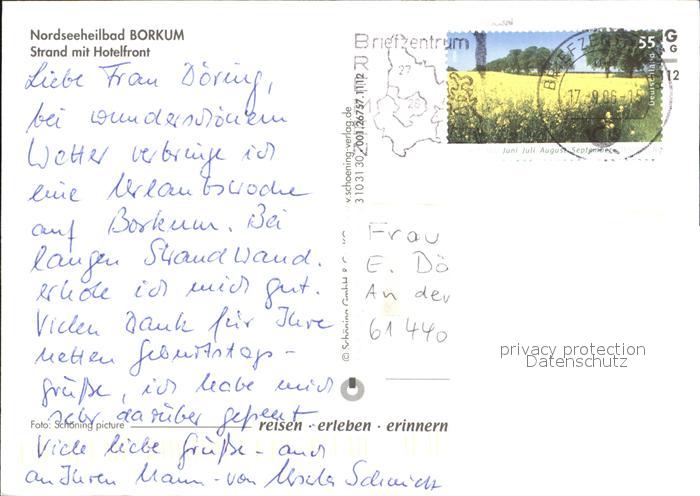 Nordseeheilbad BORKUM
Strand mit Hotelfront
Liebe Frau Döring,
bei wunderschönem
Wetter verbringe ich
eine Urlaubswoche
auf Borkum. Bei
langen Strandwand.
erhole ich mich gut.
Vielen Dank für Ihre
netten Geburtstags-
grüße, ich habe mich
sehr darüber gefreut
Foto: Schöning picture
reisen · erleben · erinnern
Viele liebe Grüße - auch
an Ihren Mann - von Ursula Schmidt
Briefzentrum
27
26
BRIEFZEN
17.9.06
55
Deutschland
Juni Juli August September
G
12
v.schoening-verlag.de
3 10 31 30
001 26757 11 12
© Schöning GmbH & C
Frau
E. Dö
An der
61440
privacy protection
Datenschutz